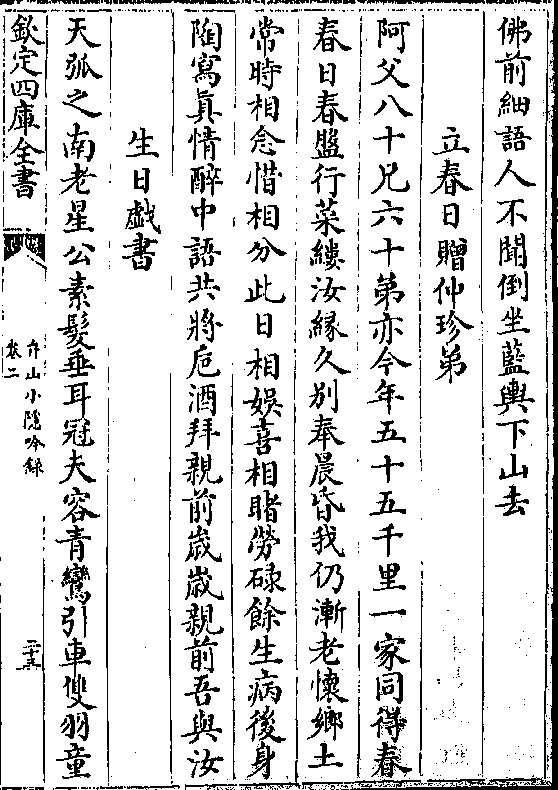 佛前細語人不聞倒坐藍輿下山去
立春日贈仲珍弟
阿父八十兄六十第亦今年五十五千里一家同得春
春日春盤行菜縷汝縁久別奉晨昏我仍漸老懷鄉土
常時相念惜相分此日相娛喜相睹勞碌餘生病後身
陶寫真情醉中語共將巵酒拜親前歳歳親前吾與汝
生日戲書
天弧之南老星公素髮垂耳冠夫容青鸞引車雙羽童
欽定四庫全書
弁山小隱吟錄
卷二
二十五